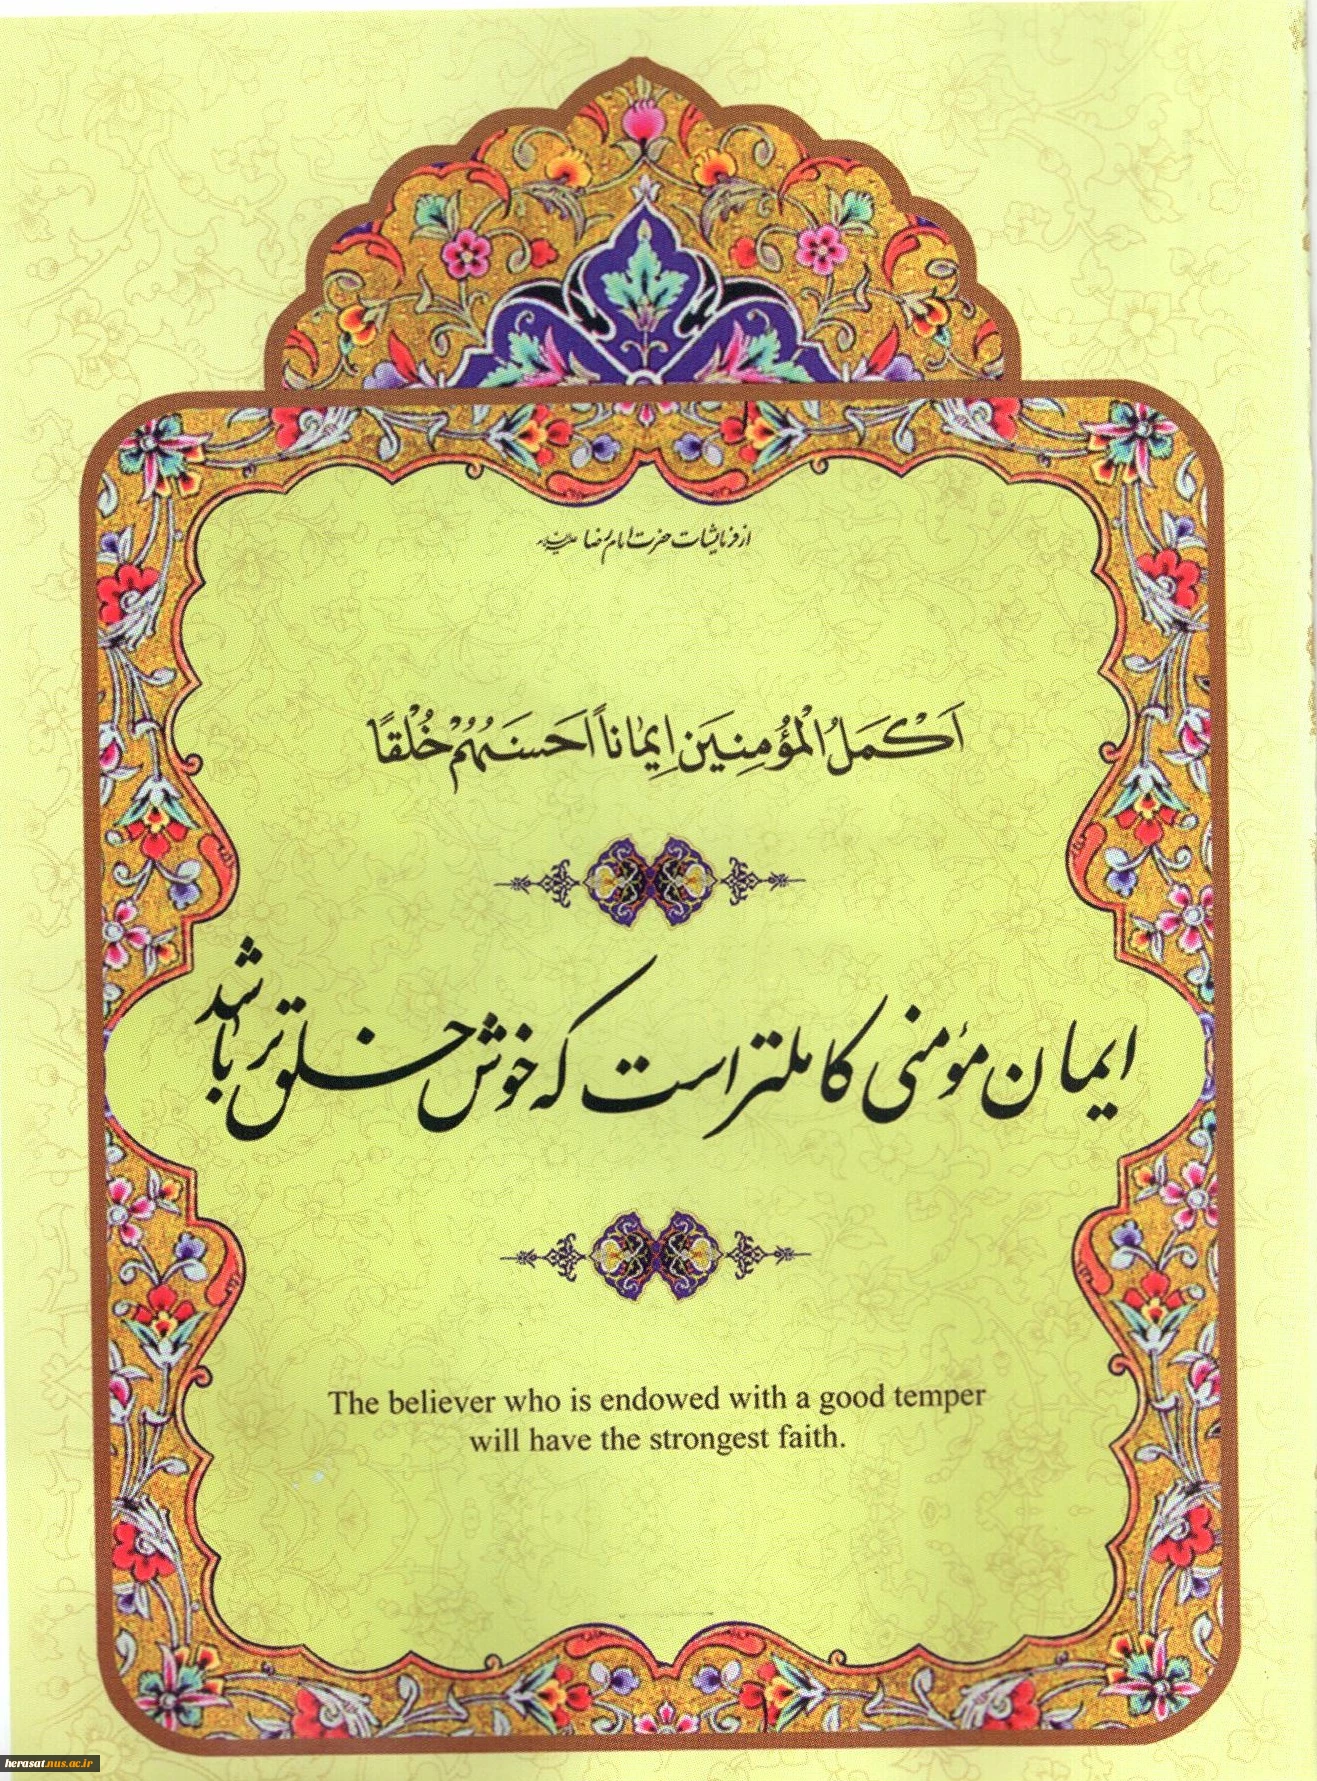 از فرمایشات حضرت امام رضا علیه‌السلام
اَکْمَلُ الْمُؤْمِنِینَ اِیمٰاناً اَحسَنُهُمْ خُلْقًا
ایمان مؤمنی کاملتر است که خوش خلق تر باشد
The believer who is endowed with a good temper
will have the strongest faith.
herasat.nus.ac.ir